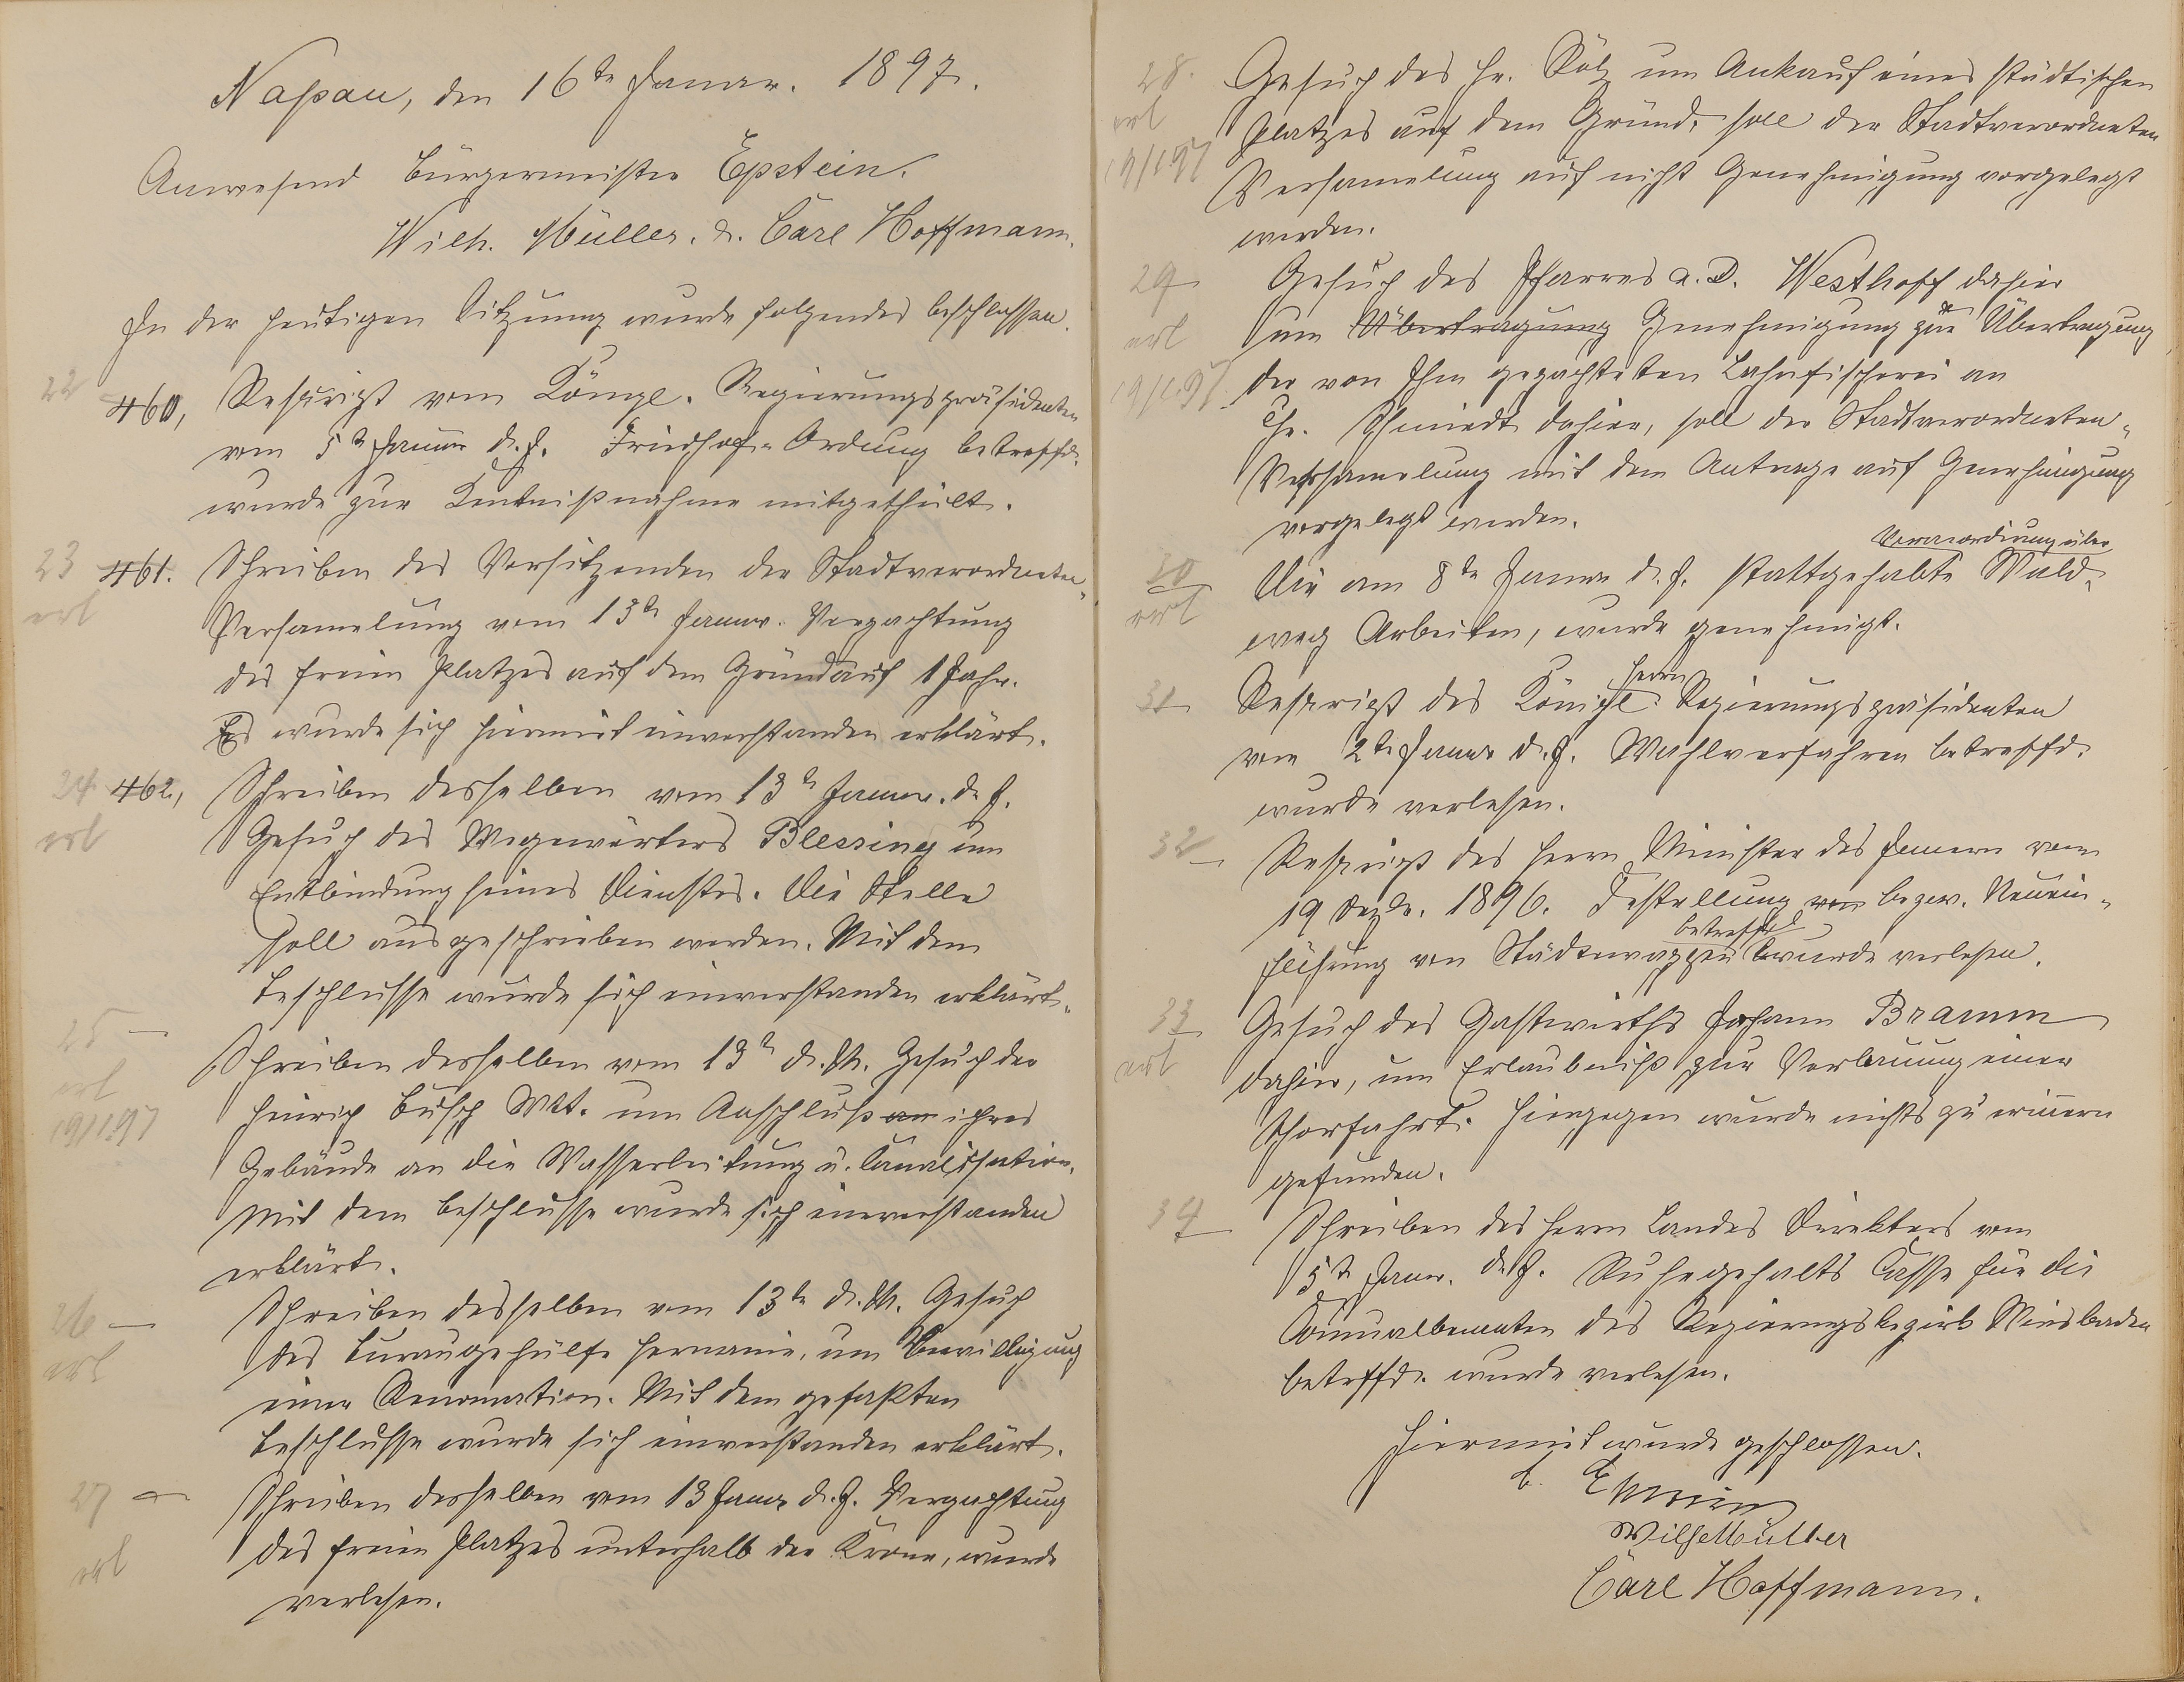 Naßau, den 16te Januar. 1897.
Anwesend Bürgermeister Epstein.
Wilh. Müller. u. Carl Hoffmann.
In der heutigen Sitzung wurde folgendes beschlossen.
22 460, Rescript vom Königl. Regierungspräsidenten
vom 5te Januar d. J. Friedhof-Ordnung betreffd.
wurde zur Kentnißnahme mitgetheilt.
23 461. Schreiben des Vorsitzenden der Stadtverordneten-
erl Versamelung vom 13te Januar. Verpachtung
des freien Platzes auf dem Gründ auf 1 Jahr.
Es wurde sich hiermit einverstanden erklärt.
24 462, Schreiben desselben vom 13te Januar. d. J.
erl Gesuch des Wegewärters Blessing um
Entbindung seines Dienstes. Die Stelle
soll ausgeschrieben werden. Mit dem
Beschlusse wurde sich einverstanden erklärt.
25 —
Schreiben desselben vom 13te d. M. Gesuch der
erl Heinrich Busch Wtt. um Anschluß an ihres
19/1.97
Gebäude an die Wasserleitung u. Canalisation.
Mit dem Beschlusse wurde sich einverstanden
erklärt.
26 — Schreiben desselben vom 13te d. M. Gesuch
erl des Bureaugehülfe Hermanni, um Bewilligung
einer Renumation. Mit dem gefaßten
Beschlusse wurde sich einverstanden erklärt.
27 — Schreiben desselben vom 13 Januar d. J. Verpachtung
erl des freien Platzes unterhalb der Krone, wurde
verlesen.
28. Gesuch des Hr. Kölz um Ankauf eines städtischen
erl Platzes auf dem Gründ, soll der Stadtverordneten
19/1.97 Versamelung auf nicht Genehmigung vorgelegt
werden.
29 Gesuch des Pfarrers a. D. Westhoff dahier
erl um Übertragung Genehmigung zur Übertragung
19/1.97. der von Ihm gepachteten Lahnfischerei an
Chr. Schmidt dahier, soll der Stadtverordneten-
Versamelung mit dem Antrage auf Genehmigung
vorgelegt werden.
30 Die am 8te Januar d. J. stattgehabte Veraccordirung über Wald-
erl weg Arbeiten, wurde genehmigt.
31 Rescript des Königl. Herrn Regierungspräsidenten
vom 2te Januar d. J. Wahlverfahren betreffd.
wurde verlesen.
32 — Rescript des Herrn Minister des Jnnern vom
19 Dezbr. 1896. Festellung von bezw. Neuein-
führung von Städtewappen betreffd wurde verlesen.
33 Gesuch des Gastwirths Johann Bramm
erl dahier, um Erlaubniß zur Verbauung einer
Thorfahrt. Hiergegen wurde nichts zu erinnern
gefunden.
34 Schreiben des Herrn Landes Direktors vom
5te Januar. d. J. Ruhegehalts Casse für die
Comunalbeamten des Regierungsbezirk Wiesbaden
betreffd. wurde verlesen.
Hiermit wurde geschlossen.
Epstein
Wilh. Müller
Carl Hoffmann.